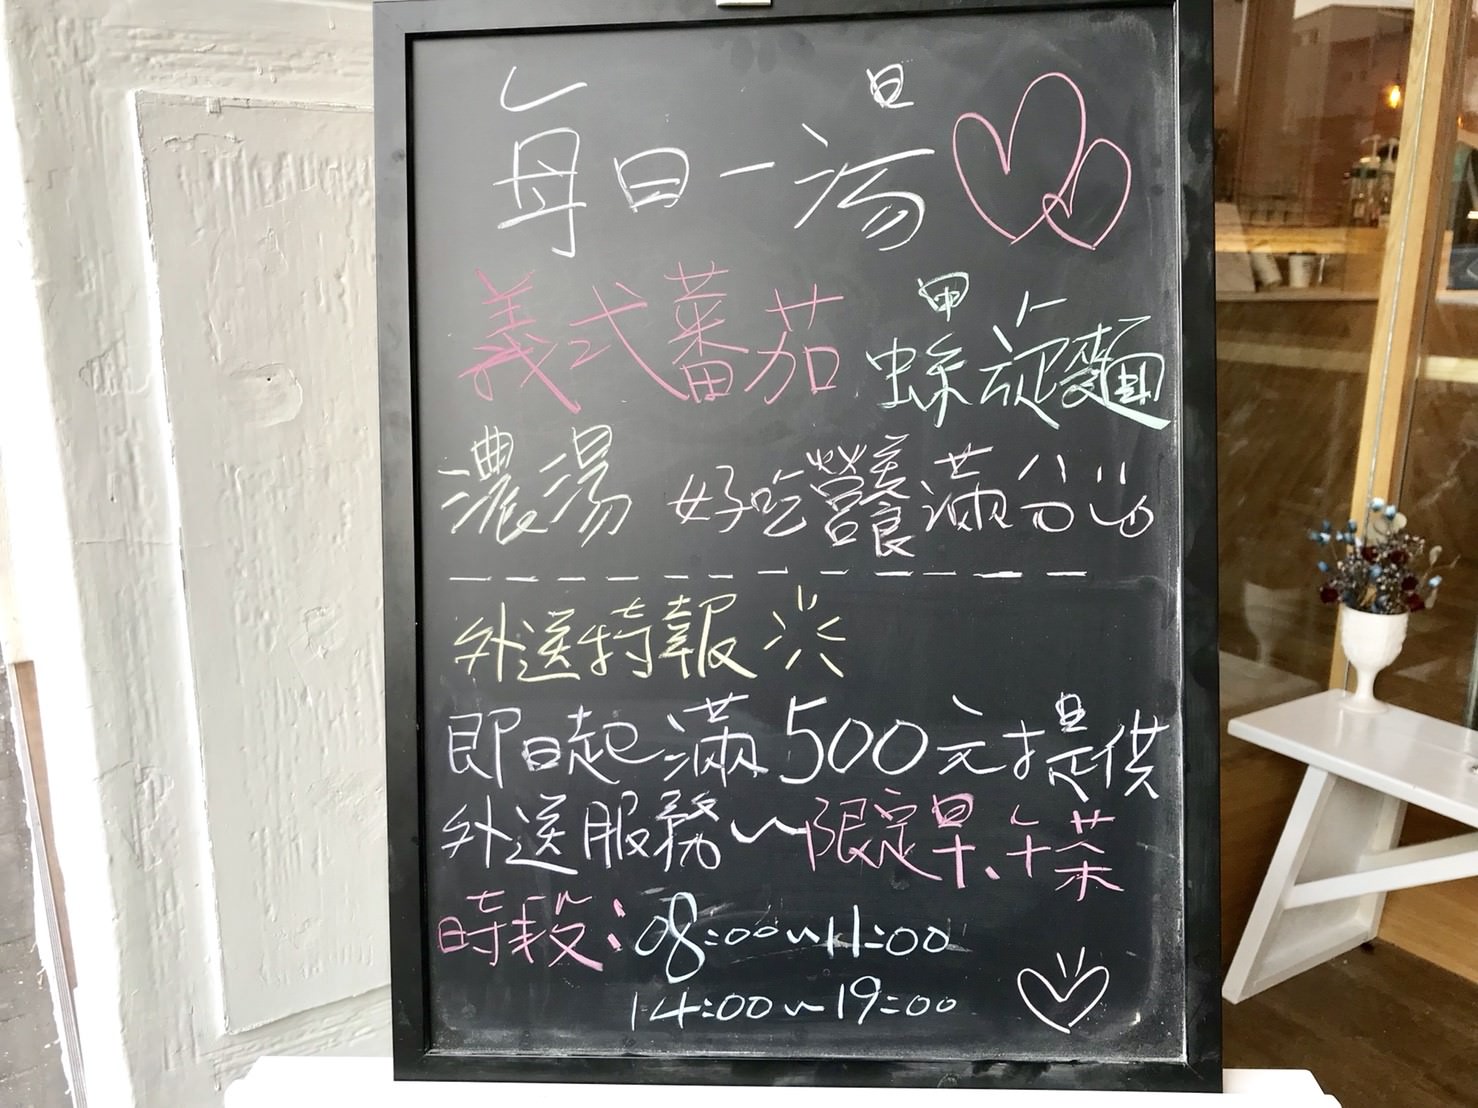 每日一湯
義式蕃茄 螺旋麵
濃湯 好吃營養滿分
外送特報
即日起滿500元提供
外送服務～限定早、午茶
時段：08:00～11:00
14:00～19:00